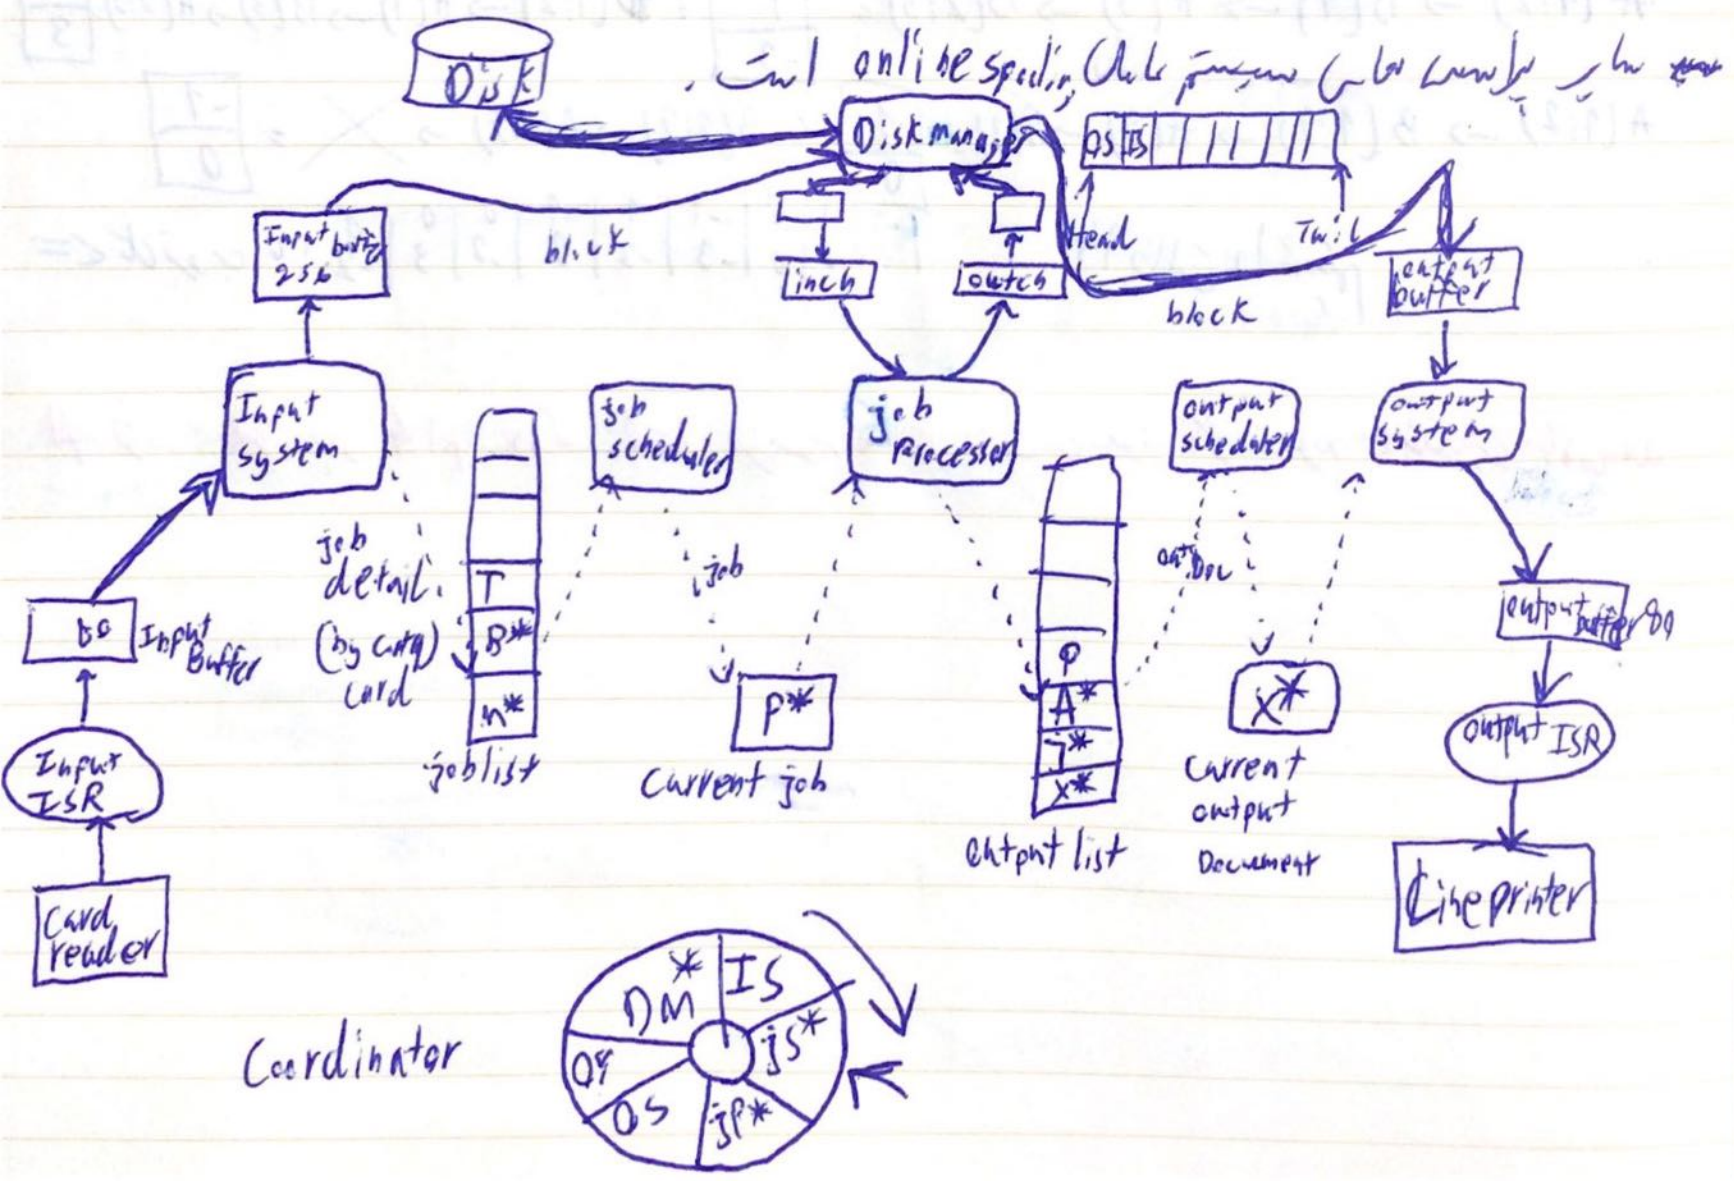 سایر پراسس های سیستم online spooling است.
Disk
Disk manager
OS IS
Head
Input buffer
256
block
inch
outch
block
output
buffer
Input
system
job
scheduler
job
processor
output
scheduler
output
system
job
detail
(by
card
T
B*
n*
job list
job
P*
Current job
Q
A*
X*
output list
out Doc
X*
Current
output
Document
output
buffer 80
output ISR
Line printer
Input
Buffer
Input
ISR
Card
reader
Coordinator
DM*
IS
jS*
jP*
OS